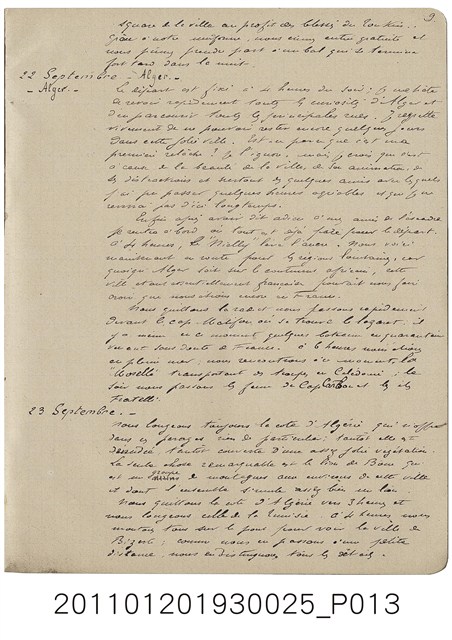 9.
square de la ville au profit des blessés du Tonkin.
Grâce à notre uniforme, nous eûmes entrée gratuite et
nous pûmes prendre part à un bal qui se termina
fort tard dans la nuit.
22 Septembre - Alger. -
- Alger. -
Le départ est fixé à 4 heures du soir; je me hâte
de revoir rapidement toutes les curiosités d'Alger et
d'en parcourir toutes les principales rues. Je regrette
vivement de ne pouvoir rester encore quelques jours
dans cette jolie ville. Est-ce parce que c'est ma
première relâche? Je l'ignore, mais je crois que c'est
à cause de la beauté de la ville, de son animation, de
ses distractions et surtout des quelques amis avec lesquels
j'ai pu passer quelques heures agréables et que je ne
reverrai pas d'ici longtemps.
Enfin après avoir dit adieu à mes amis de l'escadre
je rentre à bord où tout est déjà prêt pour le départ.
À 4 heures, le "Nielly" lève l'ancre. Nous voici
maintenant en route pour les régions lointaines, car
quoique Alger soit sur le continent africain, cette
ville étant essentiellement française pouvait nous faire
croire que nous étions encore en France.
Nous quittons la rade et nous passons rapidement
devant le cap Matifou où se trouve le lazaret. Il
y a même en ce moment quelques bateaux en quarantaine
venant sans doute de France. À 6 heures nous étions
en pleine mer; nous rencontrons en ce moment la
"Moselle" transportant des troupes en Calédonie; le
soir nous passons les feux de Cap Carbon et les îles
Fratelli.
23 Septembre. -
Nous longeons toujours la côte d'Algérie, qui n'offre
dans ces parages rien de particulier; tantôt elle est
dénudée, tantôt couverte d'une assez jolie végétation.
La seule chose remarquable est le Lion de Bône qui
est un groupe de montagnes aux environs de cette ville
et dont l'ensemble simule assez bien un lion.
Nous quittons la côte d'Algérie vers 3 heures et
nous longeons celle de la Tunisie. À 4 heures nous
montons tous sur le pont pour voir la ville de
Bizerte; comme nous en passons à une petite
distance, nous en distinguons tous les détails.
201101201930025_P013